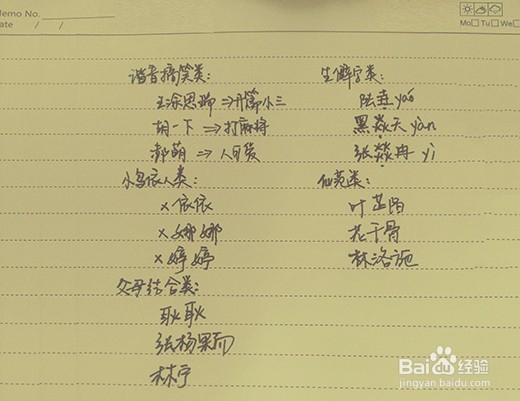 Memo No.
Mo□ Tu□ We□
Date / /
谐音搞笑类:
王涂思瑞⇒开篇小三
胡一下 ⇒打麻将
郝萌 ⇒人可货
小鸟依人类:
×依依
×娜娜
×婷婷
父母结合类:
耿耿
张杨果而
林宁
生僻字类:
陆垚yáo
黑焱天yàn
张燚冉 yì
仙范类:
叶芷陌
花千骨
林洛施
Baidu 经验
jingyan.baidu.com